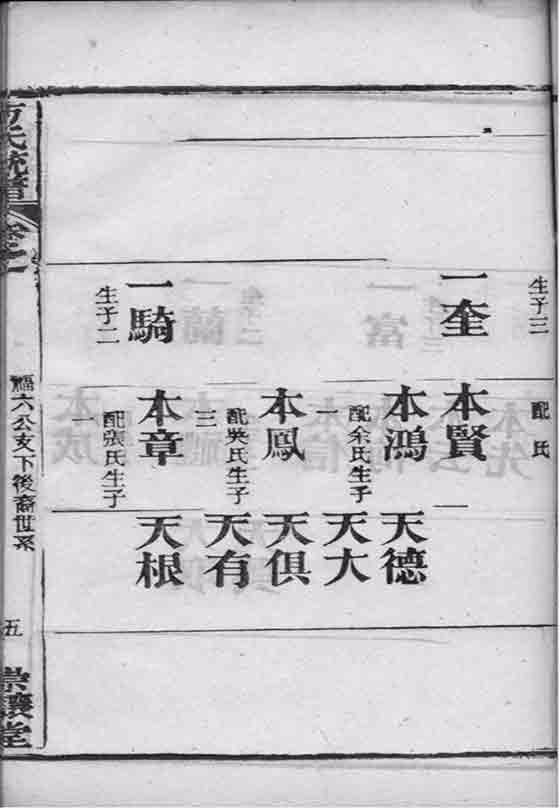 生子三
一奎
一騎
生子二
配氏
本賢
本鴻
配余氏生子
一
本鳳
配吳氏生子
三
本章
配張氏生子
一
天德
天大
天俱
天有
天根
方氏統譜
卷之一
福六公支下後裔世系
五
崇讓堂